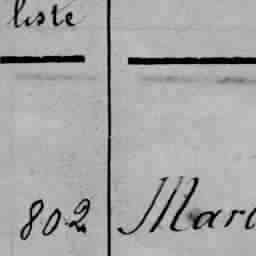 liste
802 Marc